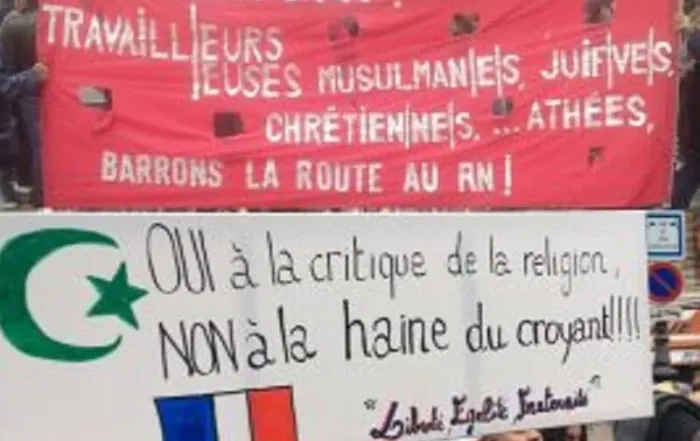 TRAVAILL|EURS
|EUSES MUSULMAN|E|S, JUIF|VE|S,
CHRÉTIEN|NE|S, ... ATHÉES,
BARRONS LA ROUTE AU RN !
OUI à la critique de la religion,
NON à la haine du croyant!!!!
"Liberté, Egalité, Fraternité"